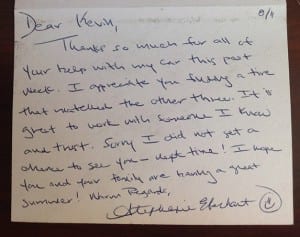 8/4
Dear Kevin,
Thanks so much for all of
your help with my car this past
week. I appreciate you finding a tire
that matched the other three. It's
great to work with someone I know
and trust. Sorry I did not get a
chance to see you – next time! I hope
you and your family are having a great
summer! Warm Regards,
Stephanie